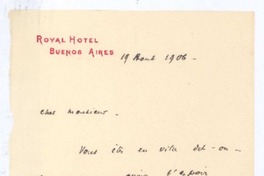 ROYAL HOTEL
BUENOS AIRES
19 Août 1906 -
Cher monsieur -
Vous êtes en ville dit-on -
l'espoir